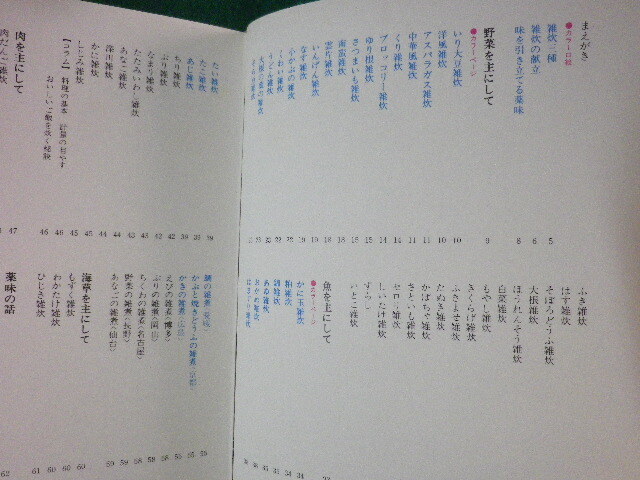 まえがき
●カラー口絵
雑炊三種 5
雑炊の献立 6
味を引き立てる薬味 8
野菜を主にして 9
●カラーページ
いり大豆雑炊 10
洋風雑炊 10
アスパラガス雑炊 11
中華風雑炊 11
くり雑炊 14
ブロッコリー雑炊 14
ゆり根雑炊 15
さつまいも雑炊 15
南蛮雑炊 18
雲片雑炊 18
いんげん雑炊 19
なす雑炊 19
小かぶの雑炊 22
くわい雑炊
うど雑炊
大根と菜の雑炊
ふき雑炊
はす雑炊
そぼろどうふ雑炊
大根雑炊
ほうれんそう雑炊
白菜雑炊
もやし雑炊
きくらげ雑炊
ふきよせ雑炊
たぬき雑炊
かぼちゃ雑炊
さといも雑炊
セロリ雑炊
しいたけ雑炊
すみし
いとこ雑炊
魚を主にして
●カラーページ
かに玉雑炊 34
粕雑炊 34
あゆ雑炊
おかめ雑炊
はまぐり雑炊
たい雑炊 39
たこ雑炊 39
あじ雑炊 39
ちり雑炊 42
ぶり雑炊 42
なまり雑炊 42
たたみいわし雑炊 43
あなご雑炊 43
深川雑炊 44
かに雑炊 44
しじみ雑炊 45
〔コラム〕 料理の基本 計量の目やす 45
おいしいご飯を炊く秘訣 46
肉を主にして 47
肉だんご雑炊
鯛の雑煮
かぶと焼きどうふの雑煮〈京都〉
かきの雑煮〈広島〉
えびの雑煮〈博多〉
ぶりの雑煮〈岡山〉
ちくわの雑煮〈名古屋〉
野菜の雑煮〈長野〉
あなごの雑煮〈仙台〉 59
海草を主にして 60
もずく雑炊 60
わかたけ雑炊 60
ひじき雑炊 61
薬味の話 62